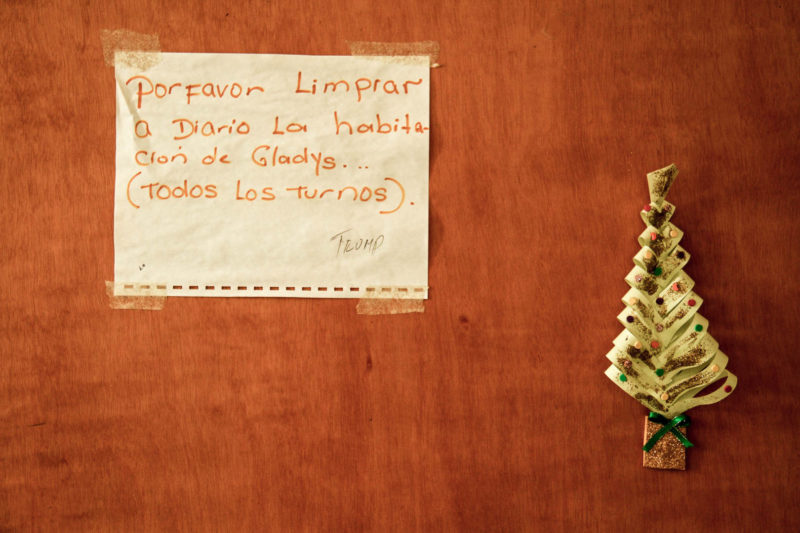 Porfavor Limpiar
a Diario La habita-
ción de Gladys...
(Todos Los Turnos).
TRUMP